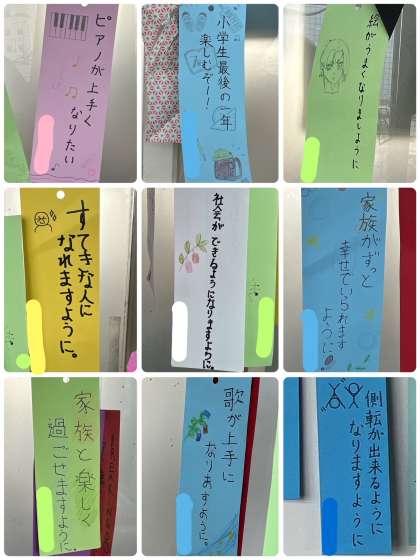 ピアノが上手く
なりたい
小学生最後の一年
楽しむぞー!
絵がうまくなりましように
すてきな人に
なれますように。
社会ができるようになりますように。
家族がずっと
幸せでいられます
ように。
家族と楽しく
過ごせますように。
歌が上手に
なりあすように。
側転が出来るように
なりますように